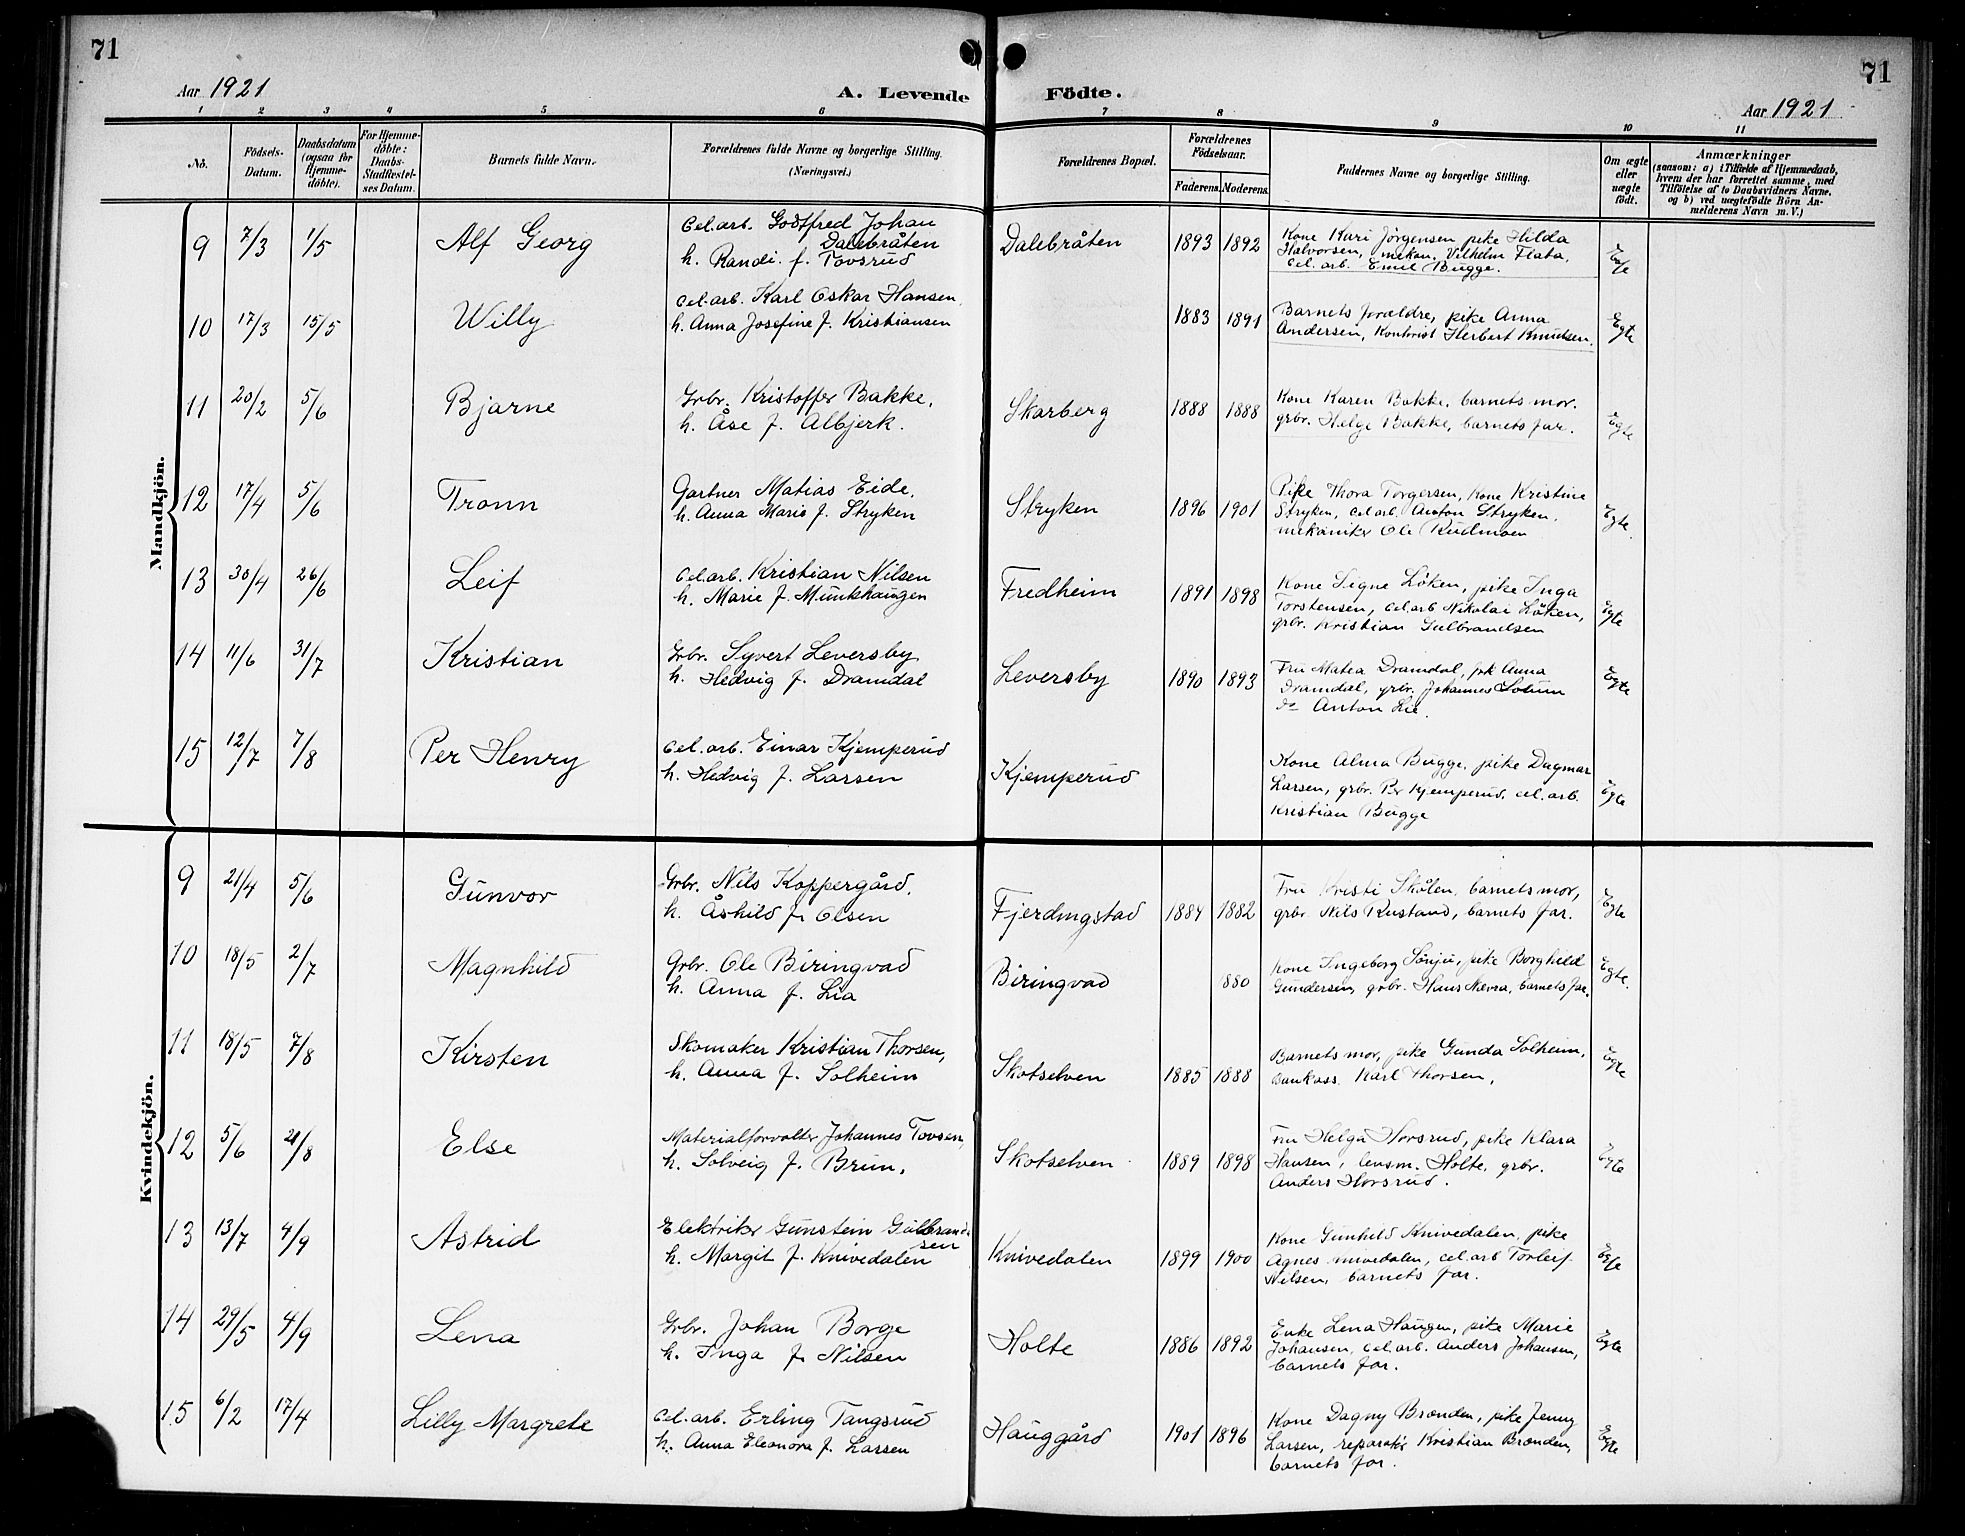 71
71
Aar 1921
A. Levende Födte.
Aar 1921
1 2 3 4 5 6 7 8 9 10 11
No.
Födsels-Datum.
Daabsdatum (ogsaa for Hjemme-döbte).
For Hjemme-döbte: Daabs-Stadfæstel-ses Datum.
Barnets fulde Navn.
Forældrenes fulde Navne og borgerlige Stilling. (Næringsvei.)
Forældrenes Bopæl.
Forældrenes Födselsaar.
Faderens. Moderens.
Faddernes Navne og borgerlige Stilling.
Om ægte eller uægte födt.
Anmærkninger
(saasom: a) i Tilfælde af Hjemmedaab, hvem der har forrettet samme, med Tilföielse af to Daabsvidners Navne, og b) ved uægtefödte Börn An-melderens Navn m. V.)
Mandkjön.
9 7/3 1/5 Alf Georg
Cel.arb. Godtfred Johan
Dalebråten
h. Randi f. Tovsrud
Dalebråten 1893 1892
Kone Kari Jörgensen pike Hilda
Halvorsen, mekan. Vilhelm Flata,
cel. arb. Emil Bugge.
Egte
10 17/3 15/5 Willy
Cel.arb. Karl Oskar Hansen,
h. Anna Josefine f. Kristiansen
1883 1891
Barnets forældre, pike Anna
Andersen, Kontorist Herbert Knudsen.
Egte
11 20/2 5/6 Bjarne
Grbr. Kristoffer Bakke,
h. Åse f. Albjerk.
Skarberg 1888 1888
Kone Karen Bakke, barnets mor.
grbr. Helge Bakke, barnets far.
Egte
12 17/4 5/6 Tronn
Gartner Matias Eide,
h. Anna Marie f. Stryken
Stryken 1896 1901
Pike Thora Torgersen, Kone Kristine
Stryken, cel.arb. Anton Stryken,
mekaniker Ole Rudmoen
Egte.
13 30/4 26/6 Leif
Cel.arb. Kristian Nilsen
h. Marie f. Munkhaugen
Fredheim 1891 1898
Kone Signe Löken, pike Inga
Torstensen, cel.arb. Nikolai Löken,
grbr. Kristian Gulbrandsen
Egte
14 11/6 31/7 Kristian
Grbr. Syvert Leversby
h. Hedvig f. Dramdal
Leversby 1890 1893
Fru Matea Dramdal, pk Anna
Dramdal, grbr. Johannes Solum
do Anton Lie.
Egte
15 12/7 7/8 Per Henry
Cel.arb. Einar Kjemperud
h. Hedvig f. Larsen
Kjemperud
Kone Alma Bugge, pike Dagmar
Larsen, grbr. Per Kjemperud, cel.arb.
Kristian Bugge
Egte
Kvindekjön.
9 21/4 5/6 Gunvor
Grbr. Nils Koppergård,
h. Åshild f. Olsen
Fjerdingstad 1884 1882
Fru Kristi Skålen, barnets mor,
grbr. Nils Rustand, barnets far.
Egte
10 18/5 2/7 Magnhild
Grbr. Ole Biringvad
h. Anna f. Lia
Biringvad 880
Kone Ingeborg Sönju, pike Borghild
Gundersen, grbr. Hans Nævra, barnets far.
Egte.
11 18/5 7/8 Kirsten
Skomaker Kristian Thorsen,
h. Anna f. Solheim
Skotselven 1885 1888
Barnets mor, pike Gunda Solheim,
Bankass. Karl Thorsen,
Egte
12 5/6 21/8 Else
Materialforvalter Johannes Tovsen,
h. Solveig f. Brun,
Skotselven 1889 1898
Fru Helga Horsrud, pike Klara
Hansen, lensm. Holte, grbr.
Anders Horsrud.
Egte
13 13/7 4/9 Astrid
Elektriker Gunstein Gulbrand-
sen
h. Margit f. Knivedalen
Knivedalen 1899 1900
Kone Gunhild Knivedalen, pike
Agnes Knivedalen, cel.arb Torleif
Nilsen, barnets far.
Egte
14 29/5 4/9 Lena
Grbr. Johan Borge
h. Inga f. Nilsen
Holte 1886 1892
Enke Lena Haugen, pike Marie
Johansen, cel.arb. Anders Johansen,
barnets far.
Egte
15 6/2 17/4 Lilly Margrete
Cel.arb. Erling Tangsrud
h. Anna Eleonora f. Larsen
Hauggård 1901 1896
Kone Dagny Brænden, pike Jenny
Larsen, reparatør Kristian Brænden,
barnets far.
Egte